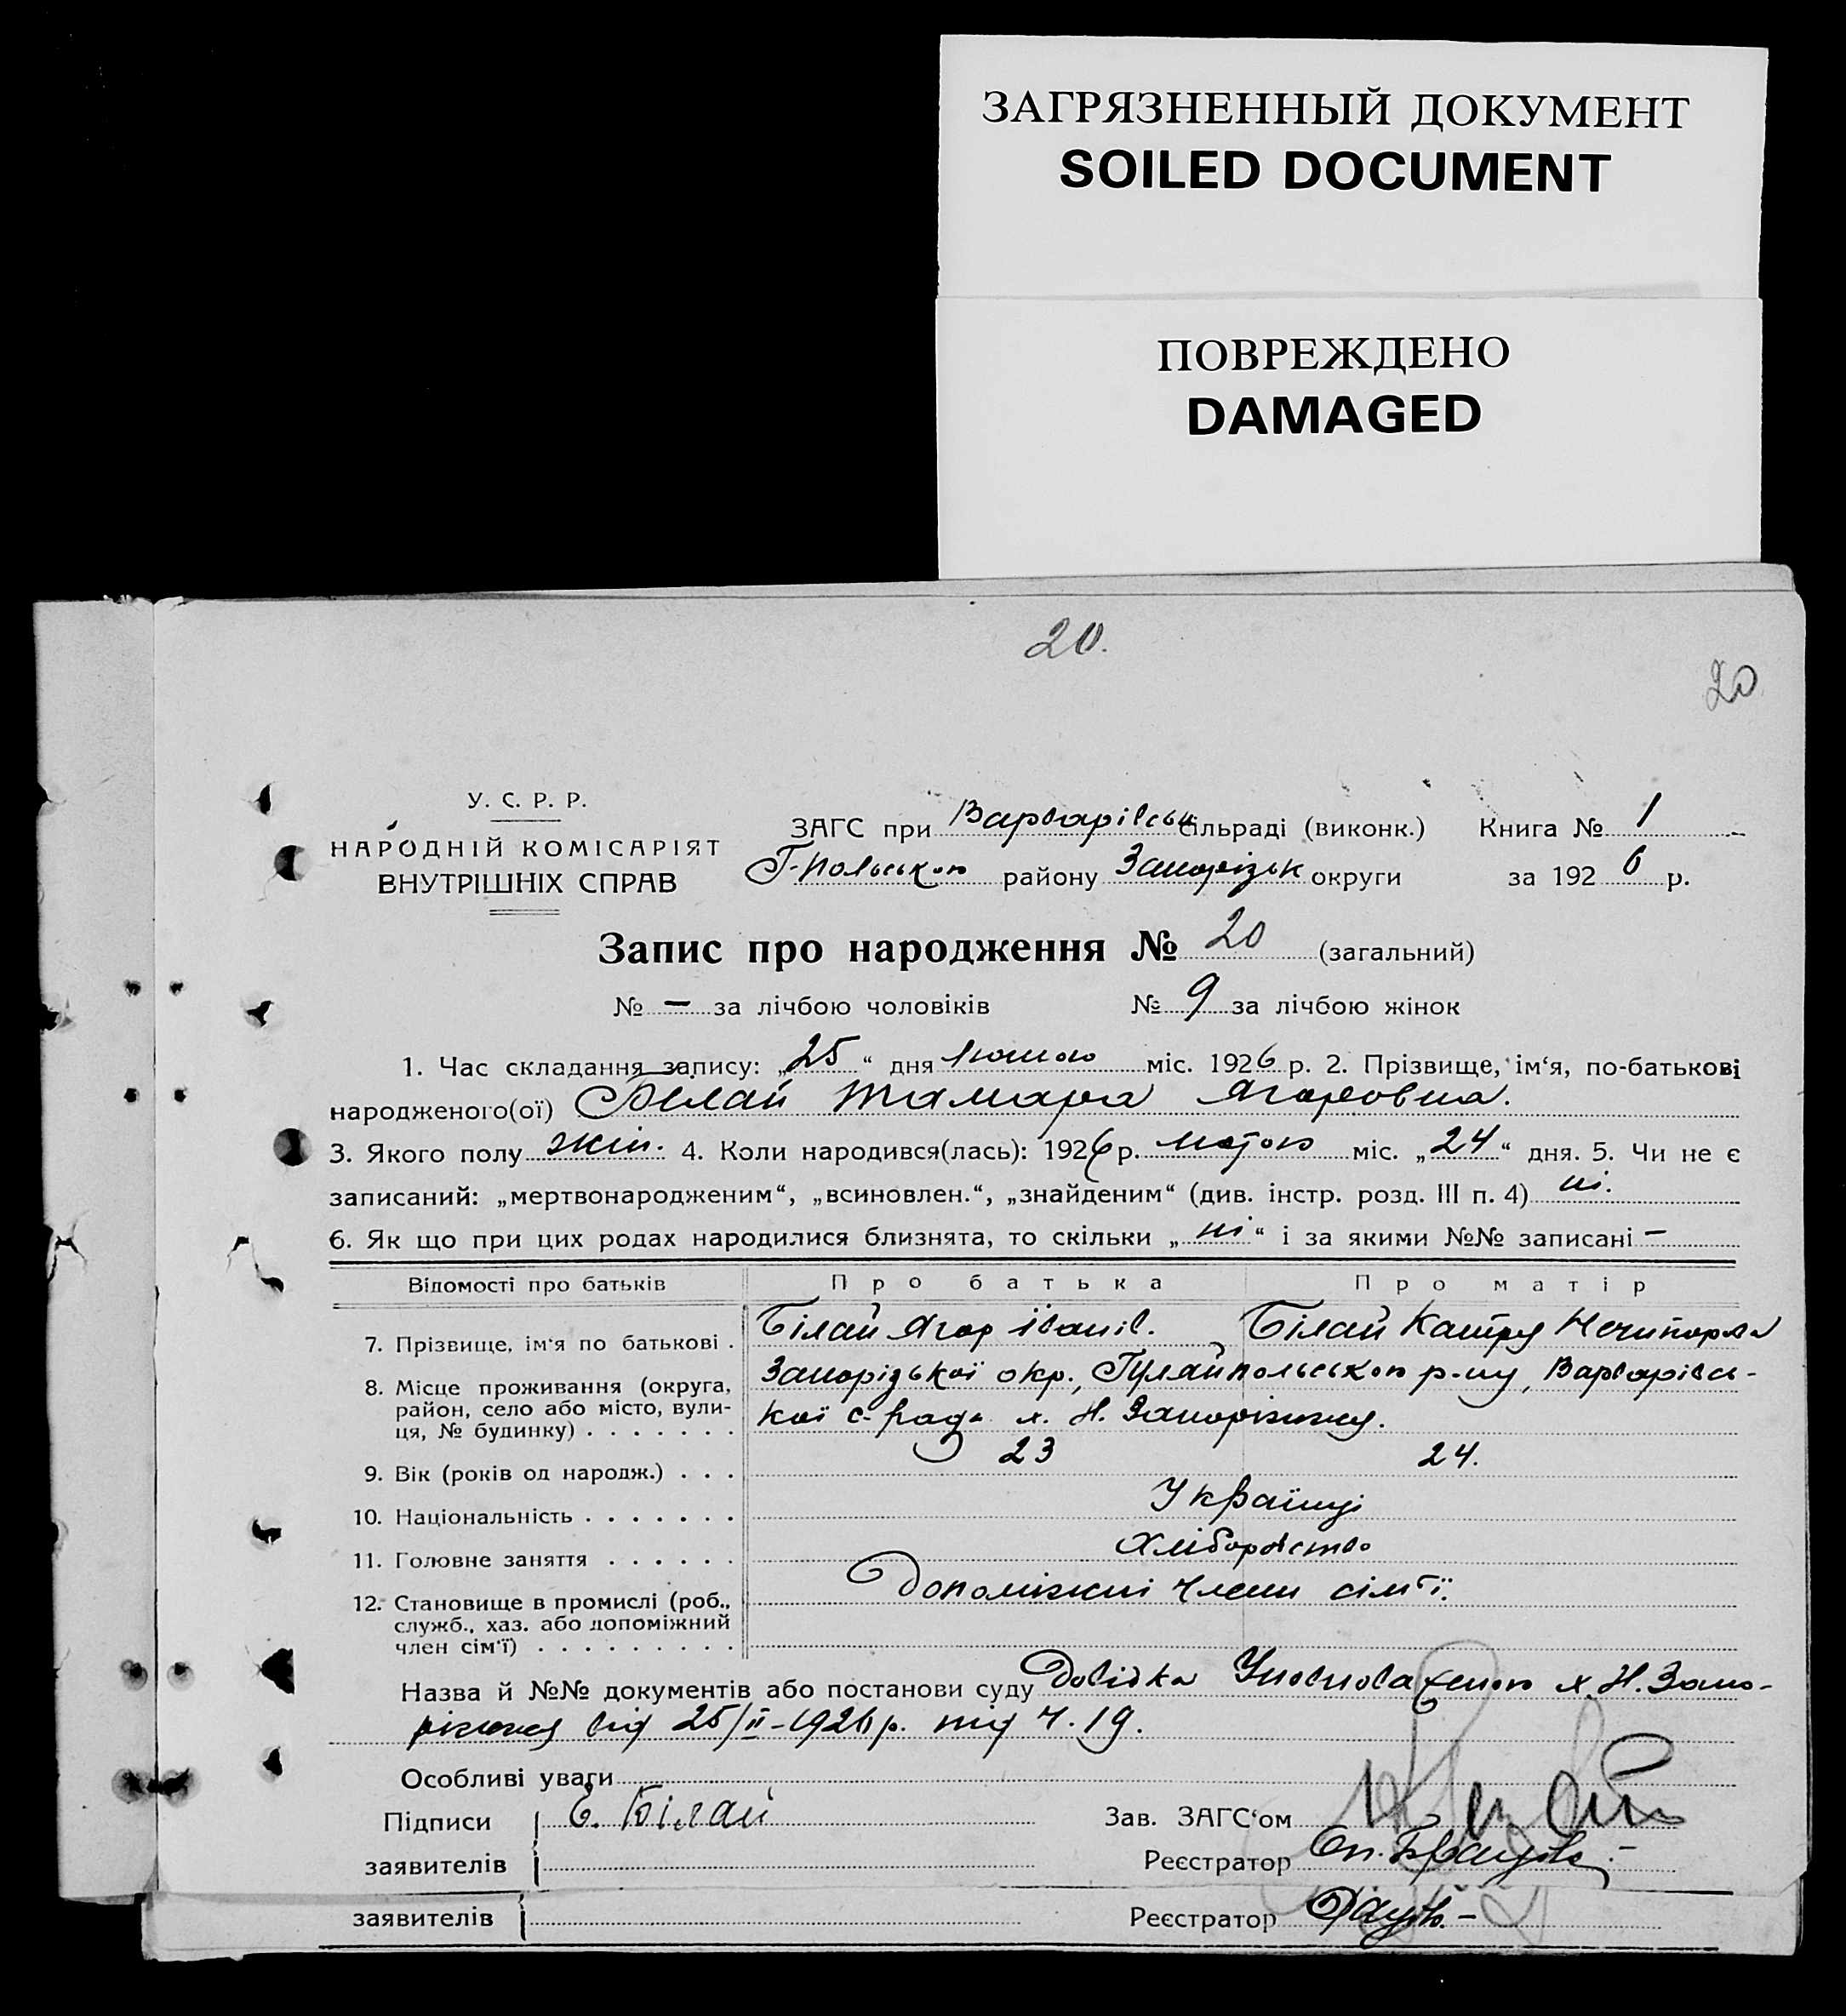 ЗАГРЯЗНЕННЫЙ ДОКУМЕНТ
SOILED DOCUMENT
ПОВРЕЖДЕНО
DAMAGED
20.
20
У. С. Р. Р.
НАРОДНІЙ КОМІСАРІЯТ
ВНУТРІШНІХ СПРАВ
ЗАГС при Варварівськ сільраді (виконк.) Книга № 1
Г-Польського району Запорізьк округи за 1926 р.
Запис про народження № 20 (загальний)
№ – за лічбою чоловіків № 9 за лічбою жінок
1. Час складання запису: „25“ дня лютого міс. 1926 р. 2. Прізвище, ім‘я, по-батькові
народженого(ої) Білай Тамара Ягоровна.
3. Якого полу жін. 4. Коли народився(лась): 1926 р. лютого міс. „24“ дня. 5. Чи не є
записаний: „мертвонародженим“, „всиновлен.“, „знайденим“ (див. інстр. розд. III п. 4) ні.
6. Як що при цих родах народилися близнята, то скільки „ні“ і за якими №№ записані –
Відомості про батьків Про батька Про матір
7. Прізвище, ім‘я по батькові . Білай Ягор Іванів. Білай Катря Нечипорів
8. Місце проживання (округа, район, село або місто, вулиця, № будинку) . . . . . . . Запорізької окр., Гуляйпольського р-ну, Варварівсь-
кої с-ради х. Н. Запоріжжя.
9. Вік (років од народж.) . . . 23 24.
10. Національність . . . . . . . Українці
11. Головне заняття . . . . . . Хліборобство
12. Становище в промислі (роб., служб., хаз. або допоміжний член сім‘ї) . . . . . . . . . Допоміжні члени сім‘ї.
Назва й №№ документів або постанови суду Довідка Уповноваженого х. Н. Запо-
ріжжя від 25/II-1926 р. під Ч. 19.
Особливі уваги
Підписи Є. Білай Зав. ЗАГС‘ом
заявителів Реєстратор
заявителів Реєстратор